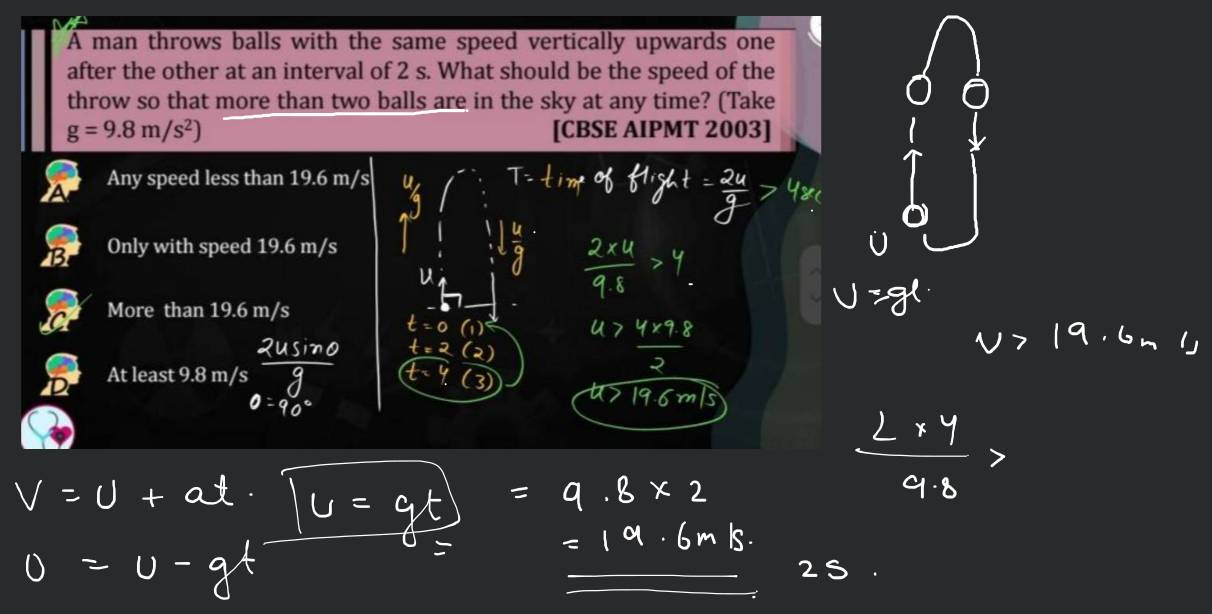 A man throws balls with the same speed vertically upwards one
after the other at an interval of 2 s. What should be the speed of the
throw so that more than two balls are in the sky at any time? (Take
g = 9.8 m/s²) [CBSE AIPMT 2003]
A Any speed less than 19.6 m/s
B Only with speed 19.6 m/s
C More than 19.6 m/s
D At least 9.8 m/s
2usinθ
g
θ=90°
u/g
u
u
g
t=0 (1)
t=2 (2)
t=4 (3)
T= time of flight = 2u/g > 4sec
2×u
9.8
> 4
u > 4×9.8
2
u > 19.6 m/s
U
U=gt.
u > 19.6m/s
2 × 4
9.8
>
V = U + at.
u = gt
= 9.8 × 2
0 = u - gt
= 19.6m/s.
2s.